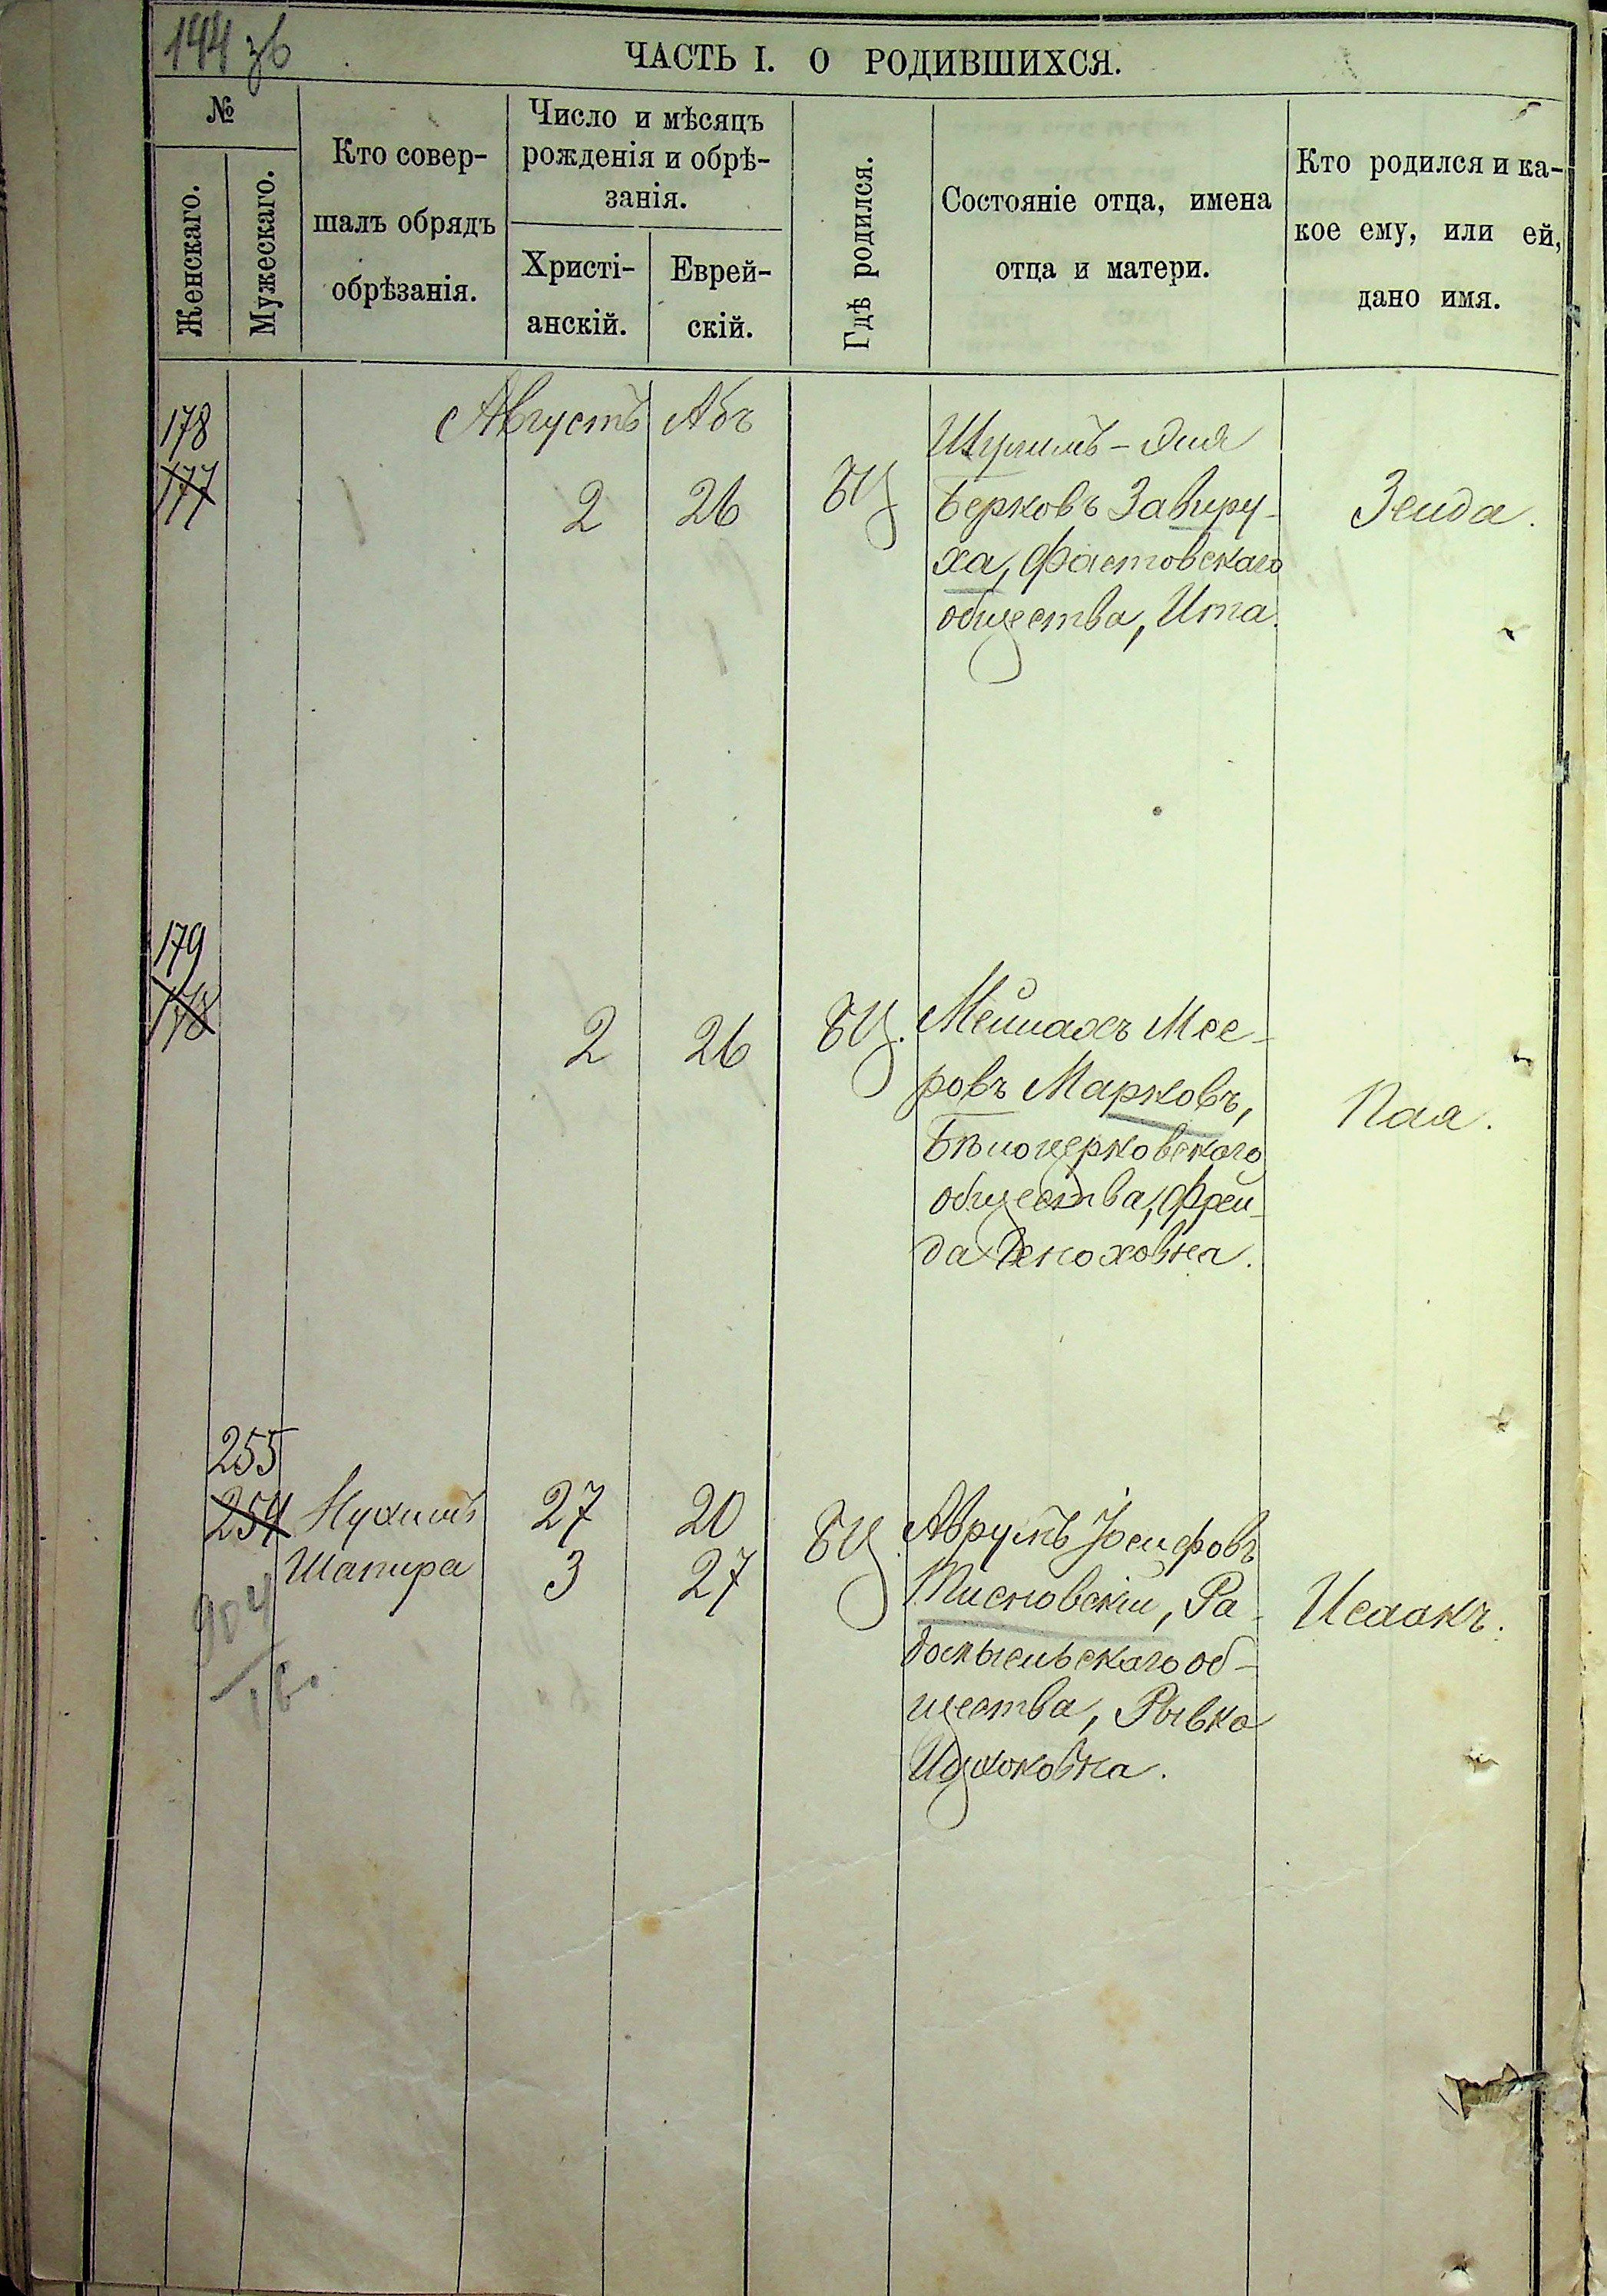 144 зв
ЧАСТЬ I. О РОДИВШИХСЯ.
№
Женскаго.
Мужескаго.
Кто совер-
шалъ обрядъ
обрѣзанія.
Число и мѣсяцъ
рожденія и обрѣ-
занія.
Христі-
анскій.
Еврей-
скій.
Гдѣ родился.
Состояніе отца, имена
отца и матери.
Кто родился и ка-
кое ему, или ей,
дано имя.
Августъ Абъ
178
177
2 26 БЦ
Шулимъ-Эля
Берковъ Завиру-
ха, Фастовскаго
общества, Ита.
Зейда.
179
178
2 26 БЦ.
Мейшахъ Мее-
ровъ Марковъ,
Бѣлоцерковскаго
общества, Фрей-
да Геноховна.
Пая.
255
254
Нухимъ
Шапира
27 20
3 27
БЦ.
Аврумъ Іосифовъ
Тисновскій, Ра-
домысльскаго об-
щества, Рывка
Ицхоковна.
Исаакъ.
904